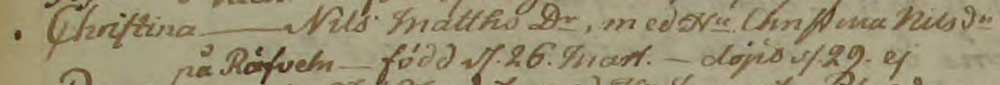 Christina — Nils Matths Dr. med Hu Christina Nilsdr
på Räfveln — född d. 26. Mart. — döpt d. 29. ej